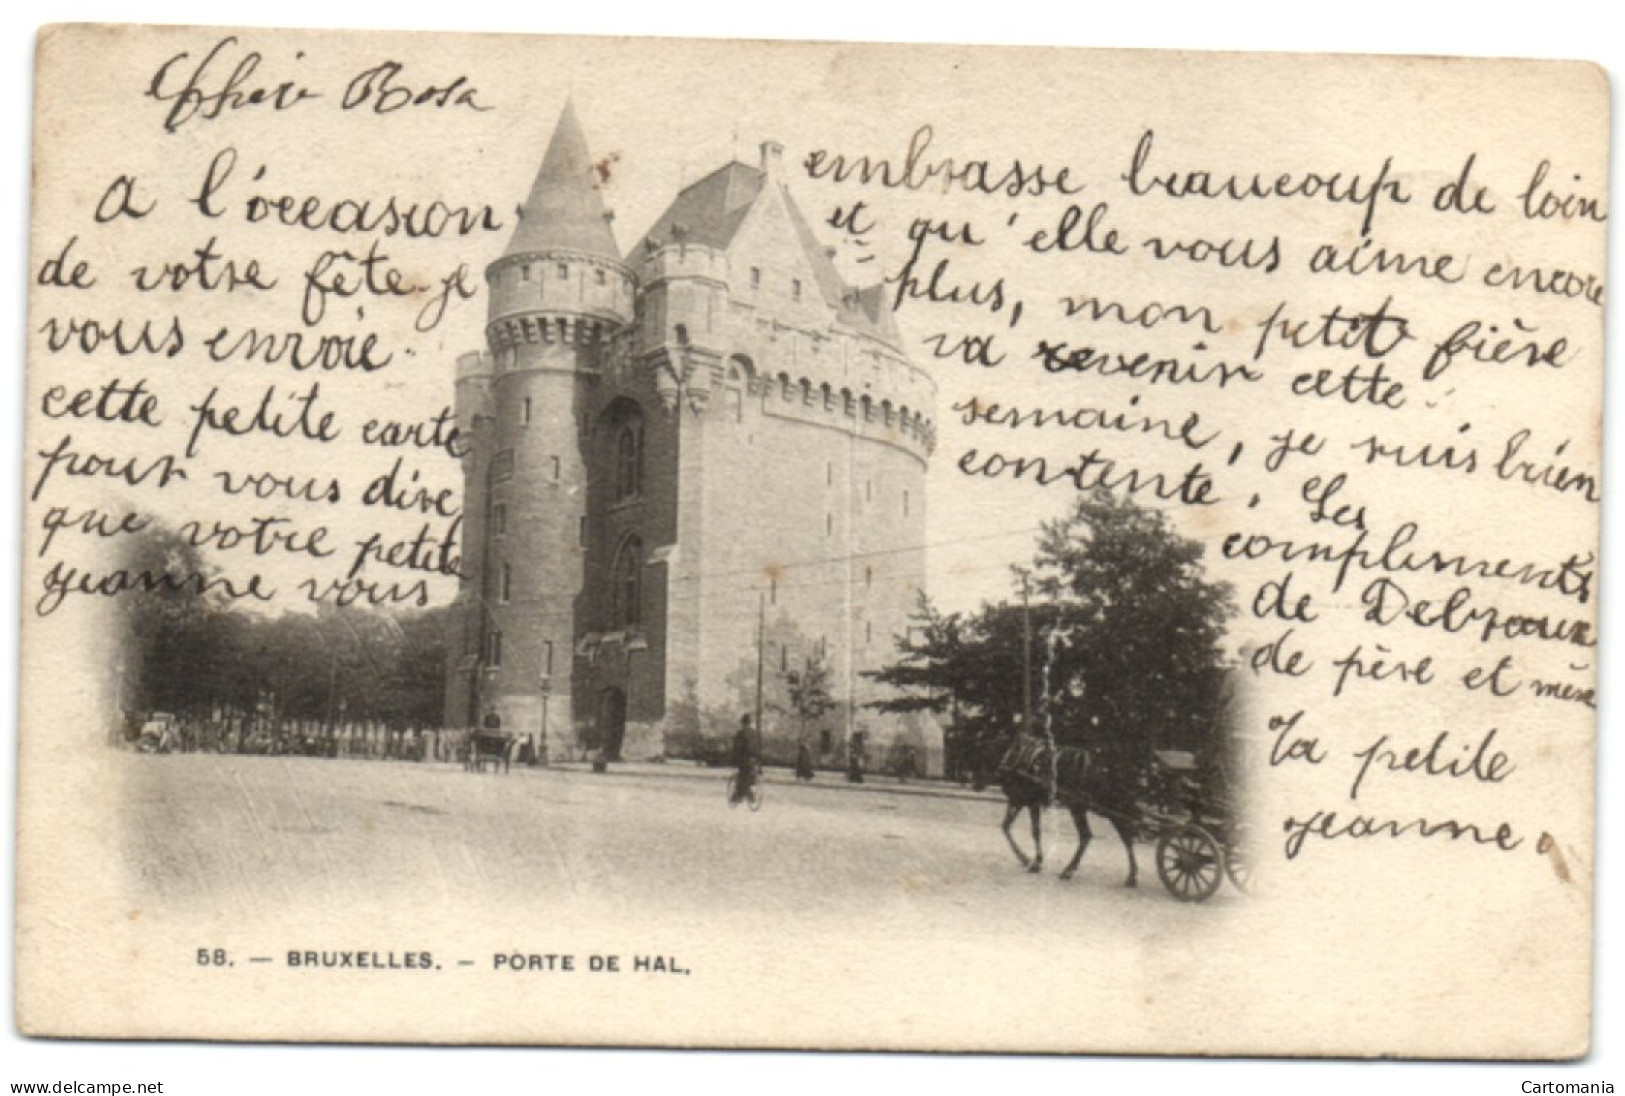 Chère Rosa
A l'occasion
de votre fête je
vous envoie
cette petite carte
pour vous dire
que votre petite
jeanne vous
embrasse beaucoup de loin
et qu'elle vous aime encore
plus, mon petit frère
va revenir cette
semaine, je suis bien
contente. Les
compliments
de Debroux
de père et mère
Ta petite
jeanne.
58. — BRUXELLES. — PORTE DE HAL.
www.delcampe.net
Cartomania